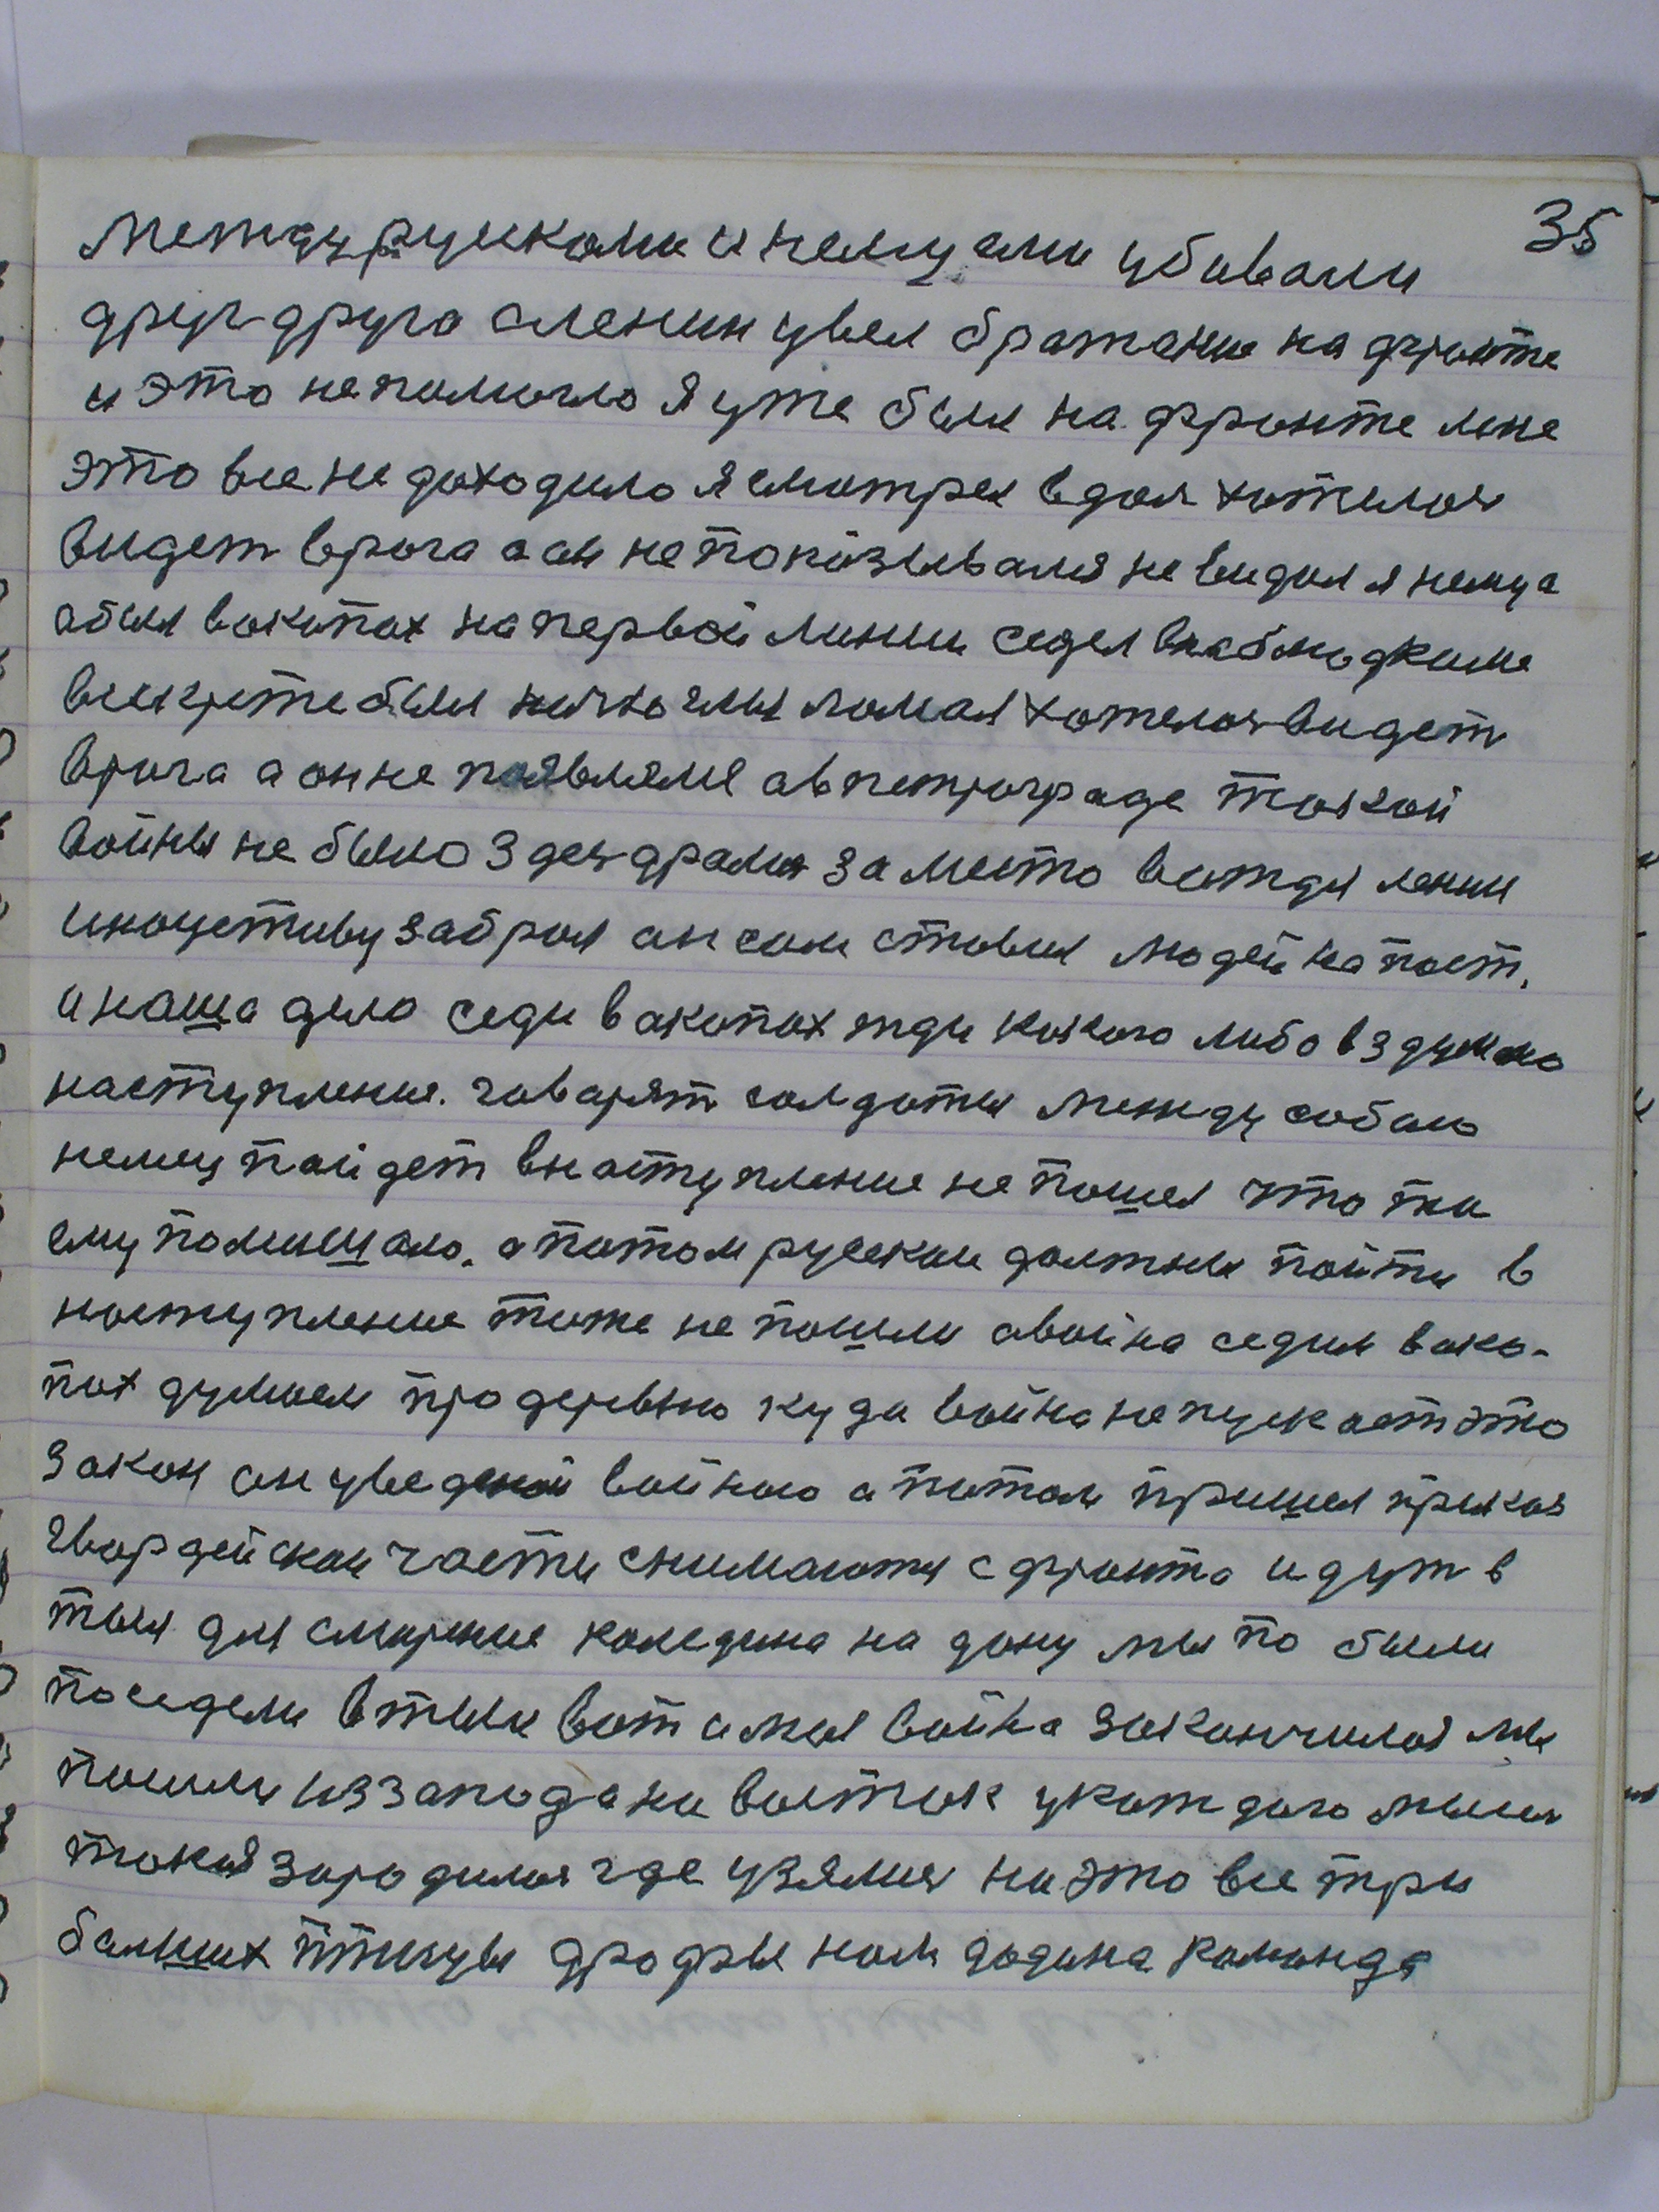 35
между рускоми и немцами убивали
друг друга а ленин увел братание на фронте
и это не помогло я уже был на фронте мне
это все не доходило я смотрел в дол хотелос
видет врага а он не показывался не видал я немца
а был в окопах на первой линии седел в наблюдкине
в секрете был ночью глы ломал хотелос видет
врага а он не появлялся а в петрограде токой
войны не было здес дралис за место вожди ленин
иницетиву забрал он сам ставил людей на пост.
а наша дело седи в окопах жди какого либо вздумно
наступления. говарят солдаты между собою
немец пойдет в наступление не пошел что ти
ему помишало. а потом руские должны пойти в
наступление тоже не пошли а война седим в око-
пах думаем про деревню куда война не пускает это
закон он уведеной войною а потом пришел приказ
гвардейские части снимаются с фронта идут в
тыл для смирение каледина на дону мы по были
поседели в тылу вот и моя война закончилас мы
пошли из запада на восток укождого мысл
токая зародилас где узялис на это все три
болших птицы дрофы нам додина команда